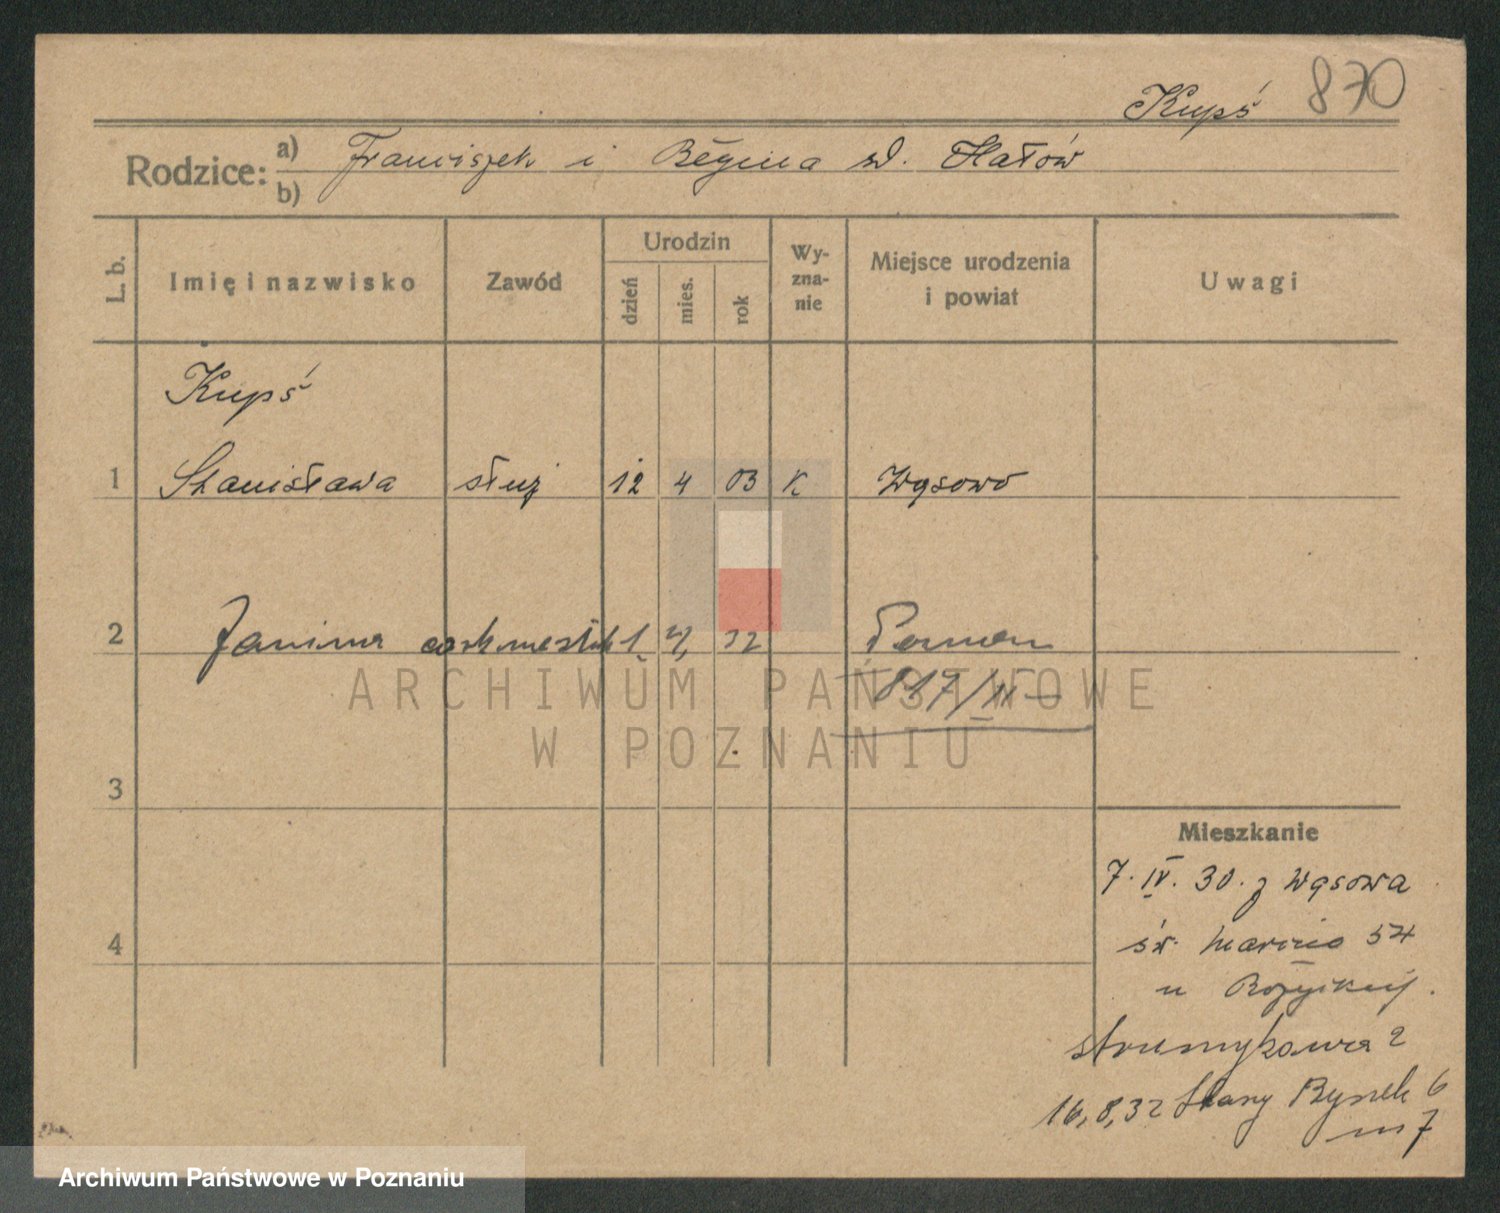 870
Kupś
Rodzice: a) Franciszek i Regina d. Hałów
b)
L. b. Imię i nazwisko Zawód Urodzin dzień mies. rok Wy-zna-nie Miejsce urodzenia i powiat Uwagi
Kupś
1 Stanisława służ 12 4 03 K Wąsowo
2 Janina córk nieślub 1. 4, 32 Poznań
817/II
ARCHIWUM PAŃSTWOWE
W POZNANIU
3
Mieszkanie
7. IV. 30. z Wąsowa
4
św. Marcin 54
u
Strumykowa 2
16,8,32 Stary Rynek 6
m 7
Archiwum Państwowe w Poznaniu